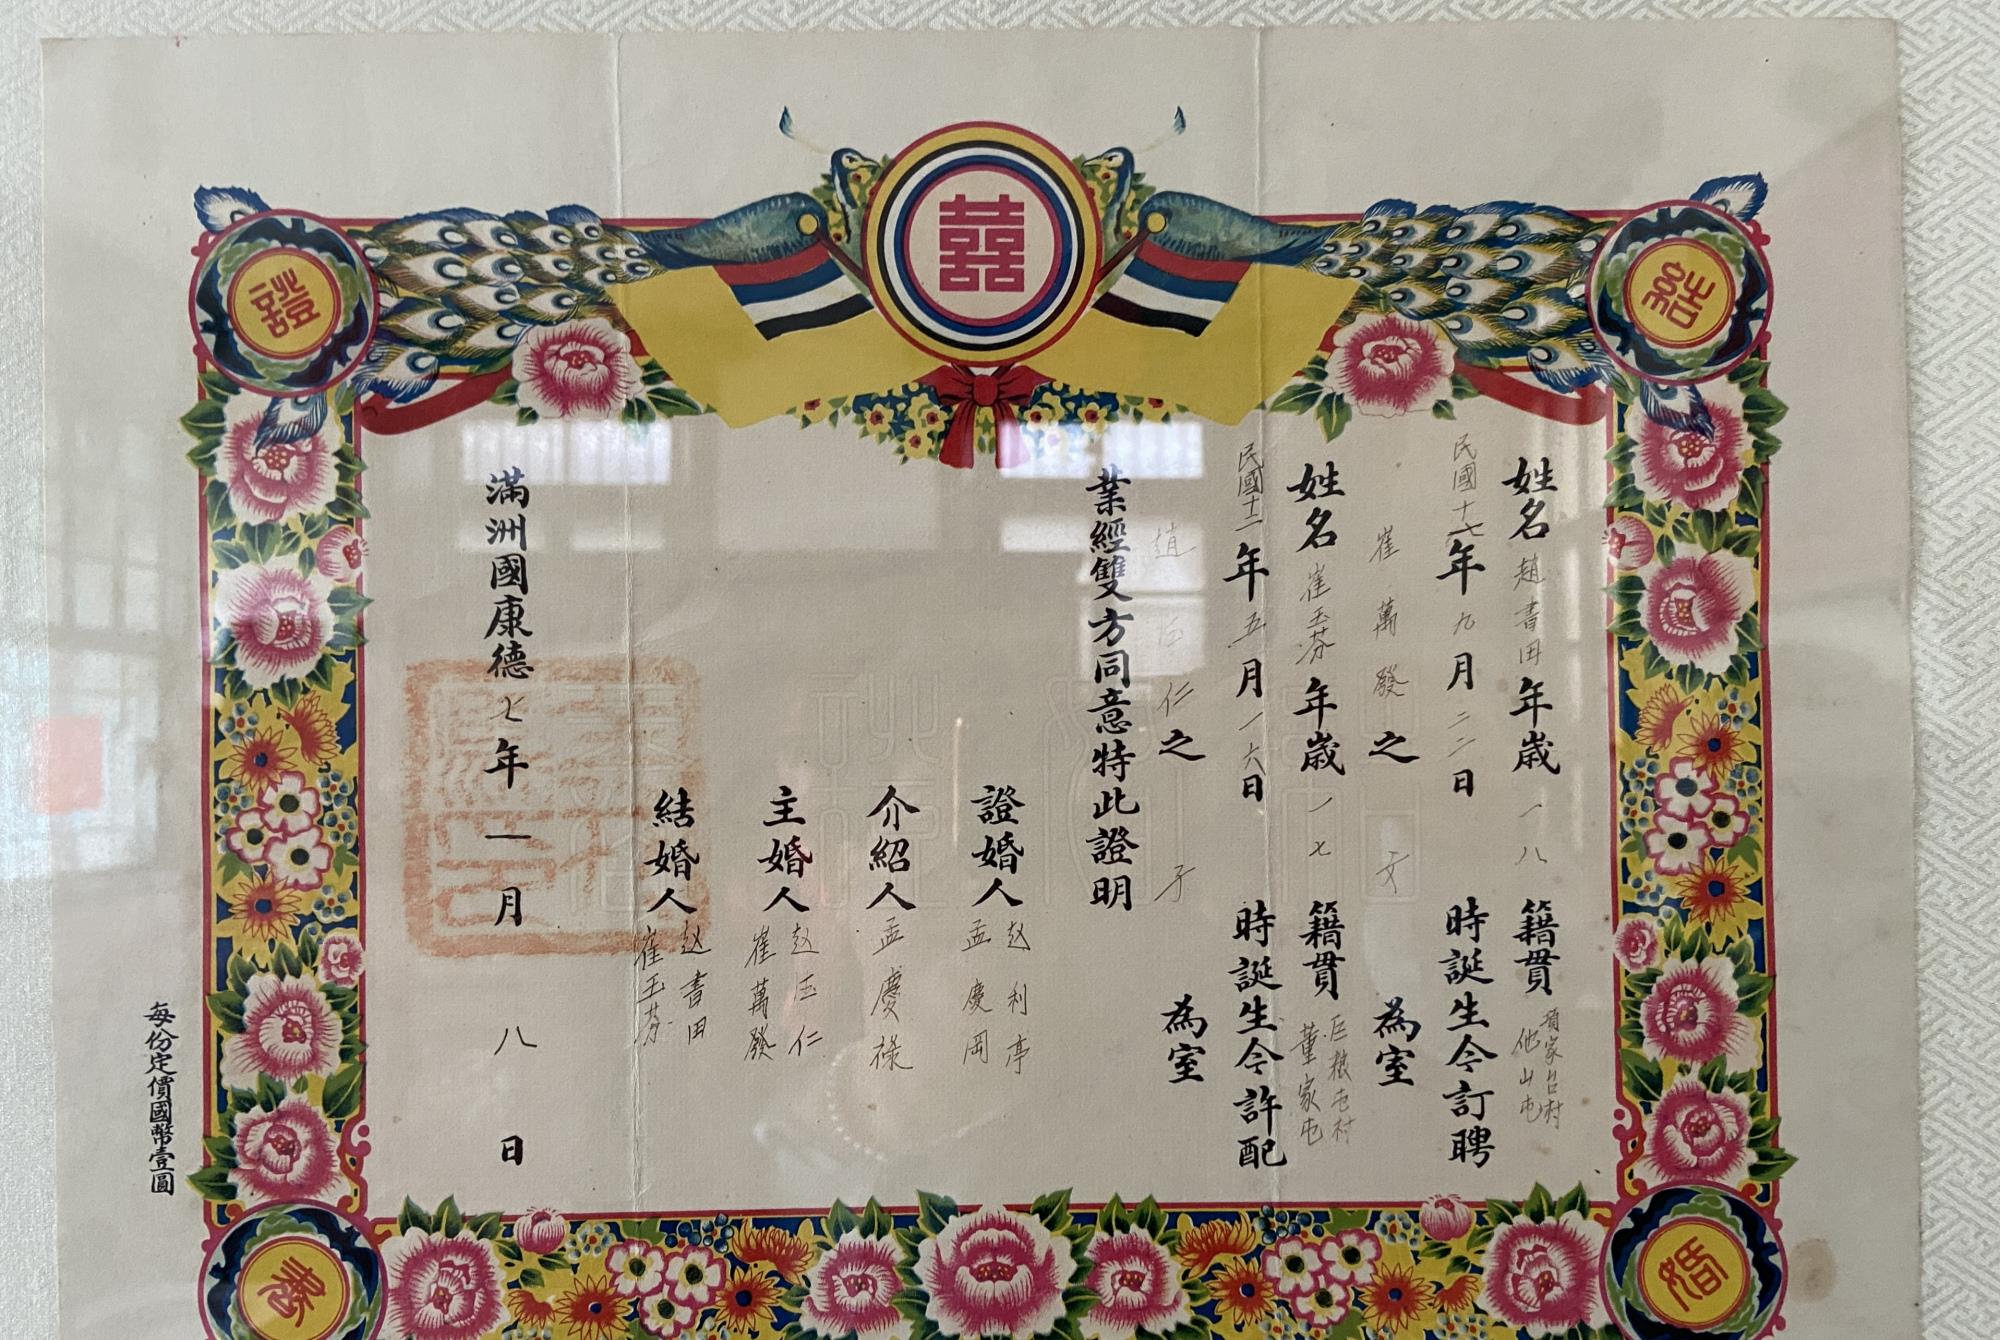 囍
結
婚
證
書
姓名趙書田年歲一八籍貫
他山屯
民國十七年九月二二日時誕生今訂聘
崔萬發之女為室
姓名崔玉芬年歲一七籍貫
董家屯
民國十二年五月一六日時誕生今許配
趙 仁之子為室
業經雙方同意特此證明
證婚人赵利亭
孟慶岡
介紹人孟慶祿
主婚人赵 仁
崔萬發
結婚人赵書田
崔玉芬
滿洲國康德七年一月八日
每份定價國幣壹圓